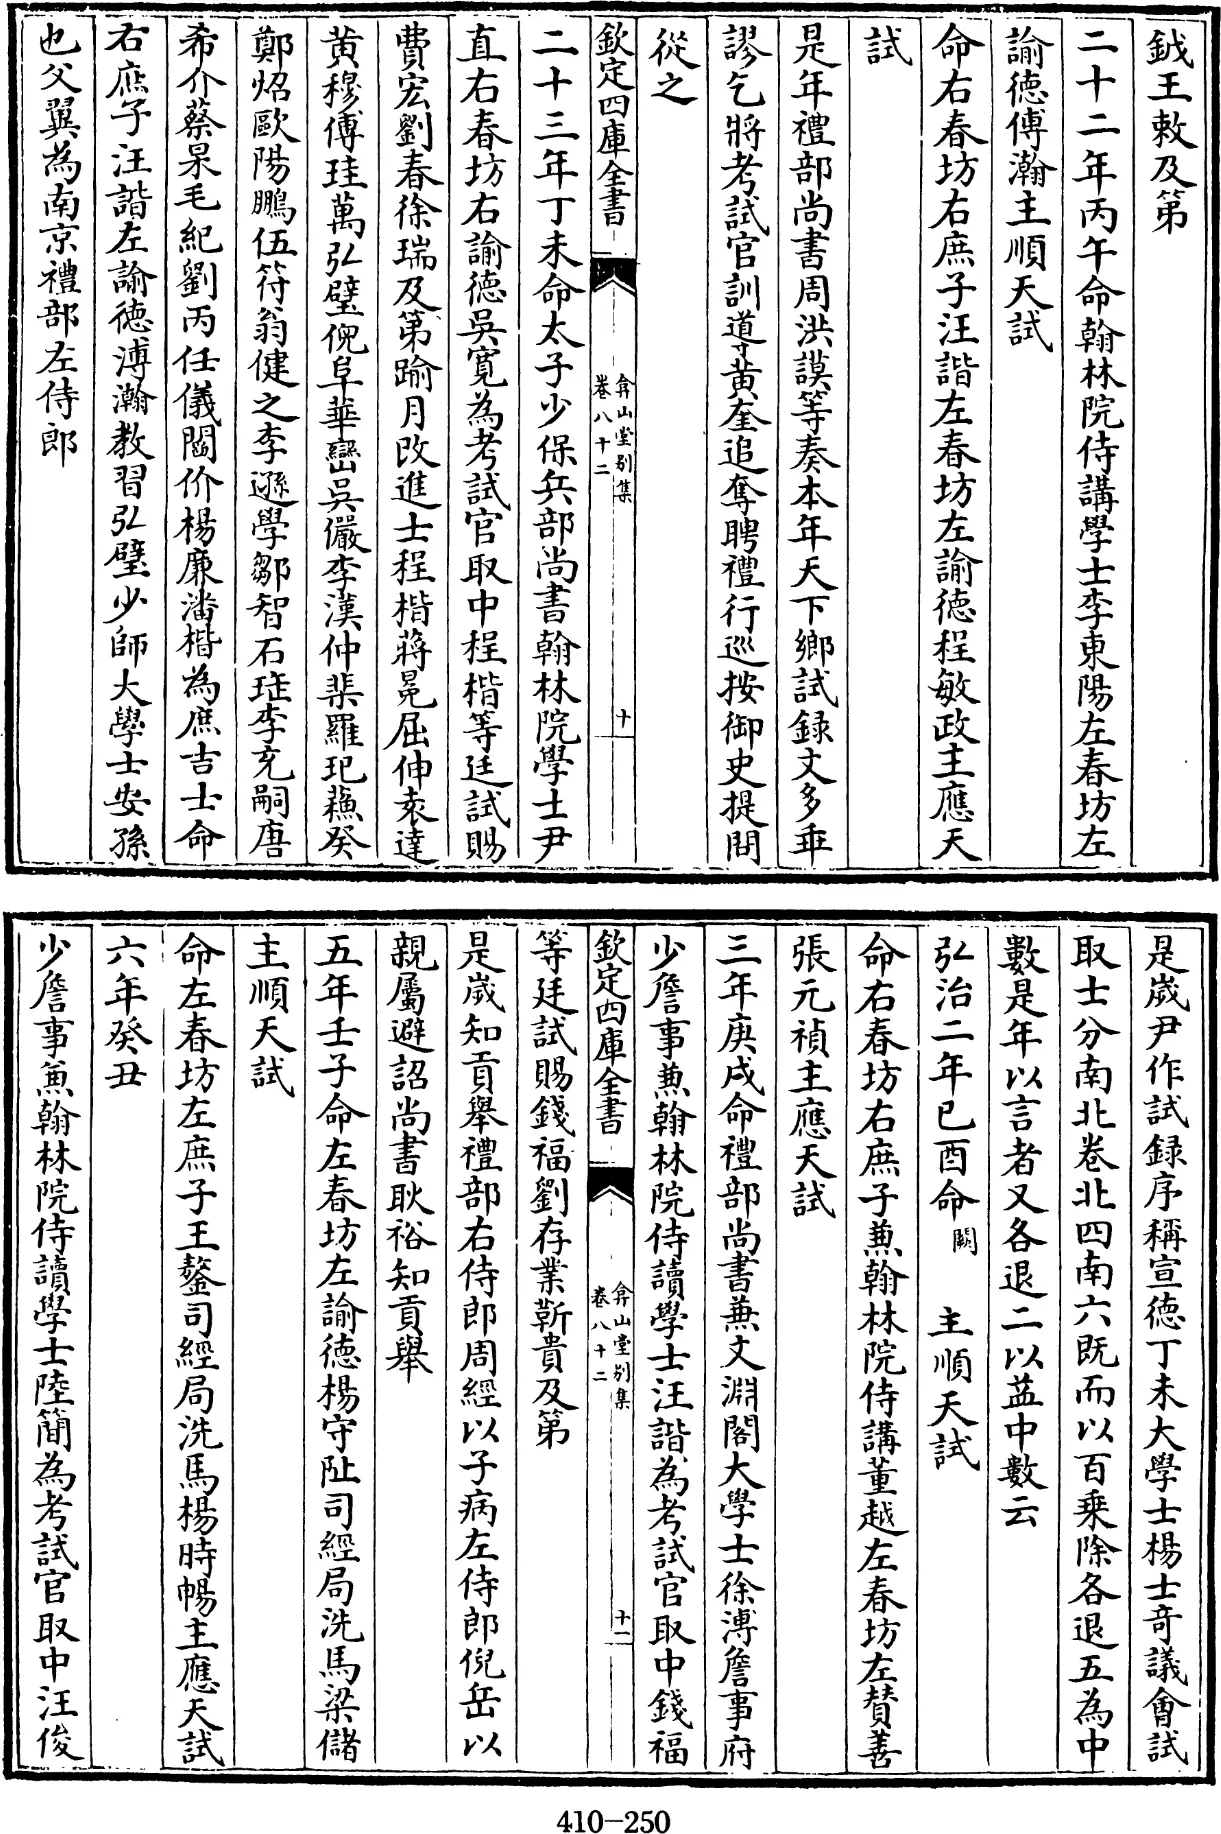 鉞王敕及第
二十二年丙午命翰林院侍講學士李東陽左春坊左
諭德傅瀚主順天試
命右春坊右庶子汪諧左春坊左諭德程敏政主應天
試
是年禮部尚書周洪謨等奏本年天下鄉試録文多乖
謬乞將考試官訓導黄奎追奪聘禮行巡按御史提問
從之
欽定四庫全書
弇山堂别集
卷八十二
十
二十三年丁未命太子少保兵部尚書翰林院學士尹
直右春坊右諭德吳寛為考試官取中程楷等廷試賜
費宏劉春徐瑞及第踰月改進士程楷蔣冕屈伸袁達
黄穆傅珪萬弘璧倪阜華巒吳儼李漢仲棐羅玘蘓葵
鄭炤歐陽鵬伍符翁健之李遜學鄒智石珤李充嗣唐
希介蔡杲毛紀劉丙任儀閻价楊廉潘楷為庶吉士命
右庶子汪諧左諭德溥瀚教習弘璧少師大學士安孫
也父翼為南京禮部左侍郎
是歲尹作試録序稱宣德丁未大學士楊士奇議會試
取士分南北卷北四南六既而以百乗除各退五為中
數是年以言者又各退二以益中數云
弘治二年已酉命闕主順天試
命右春坊右庶子兼翰林院侍講董越左春坊左賛善
張元禎主應天試
三年庚戌命禮部尚書兼文淵閣大學士徐溥詹事府
少詹事兼翰林院侍讀學士汪諧為考試官取中錢福
欽定四庫全書
弇山堂别集
卷八十二
十一
等廷試賜錢福劉存業靳貴及第
是歲知貢舉禮部右侍郎周經以子病左侍郎倪岳以
親屬避詔尚書耿裕知貢舉
五年壬子命左春坊左諭德楊守阯司經局洗馬梁儲
主順天試
命左春坊左庶子王鏊司經局洗馬楊時暢主應天試
六年癸丑
少詹事兼翰林院侍讀學士陸簡為考試官取中汪俊
410-250